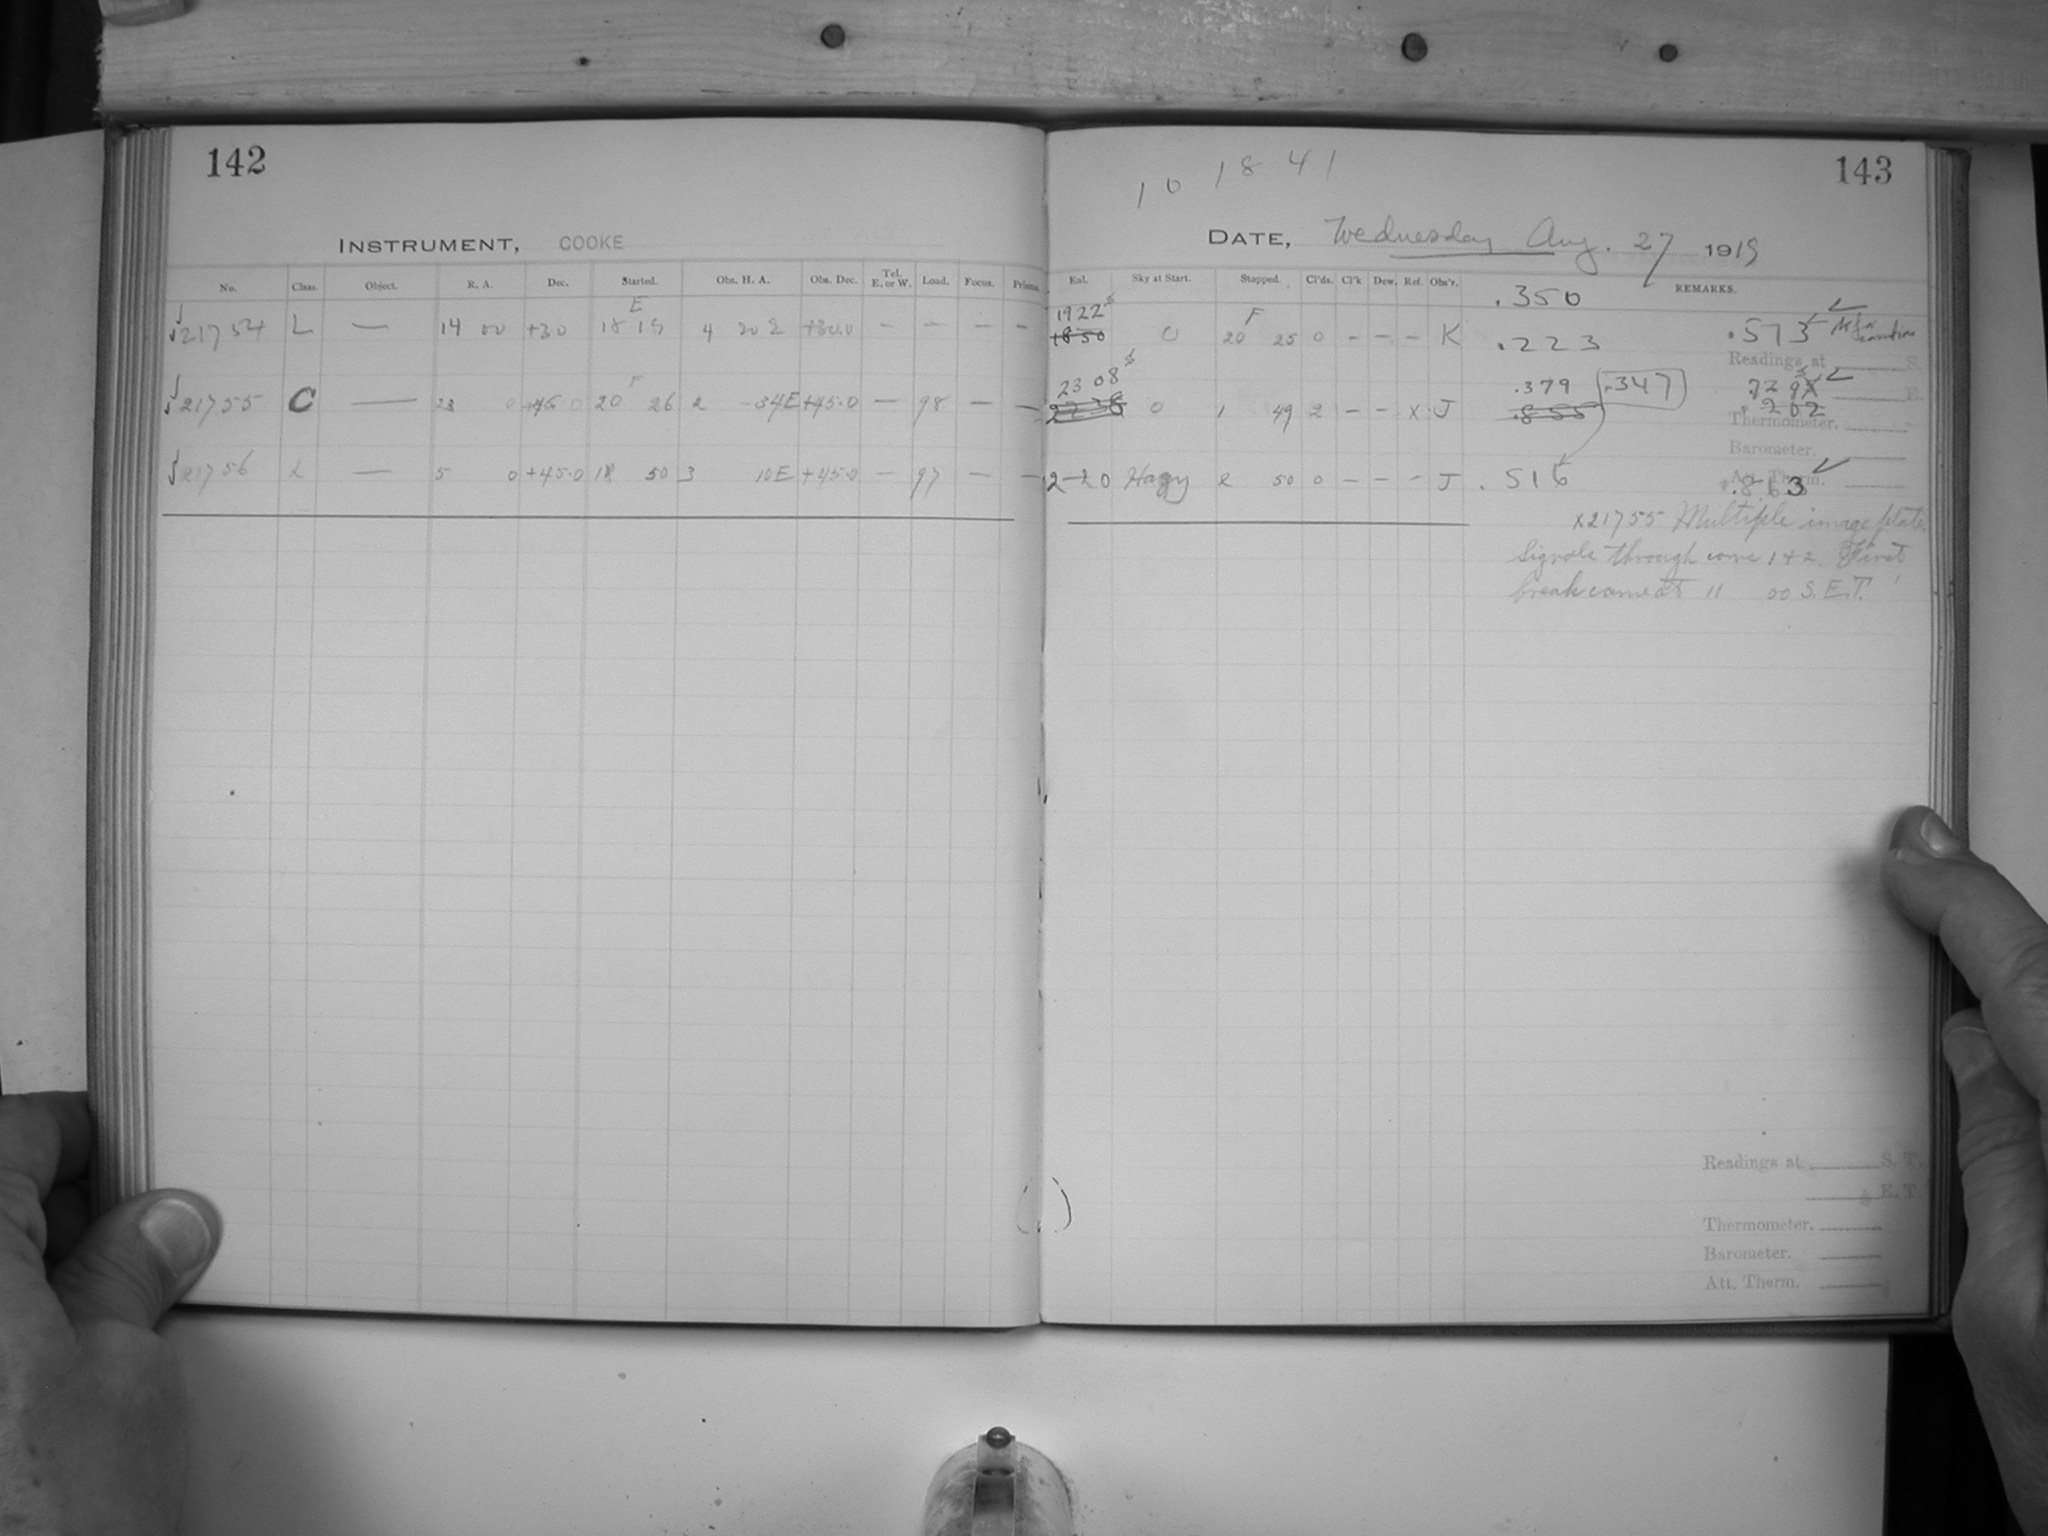 142
INSTRUMENT, COOKE
No. Class. Object. R. A. Dec. Started. Obs. H. A. Obs. Dec. Tel. E. or W. Load. Focus. Prisms.
E
21754 L — 14 00 +30 18 19 4 20 2 +30.0 — — — —
21755 C — 23 0 +45 0 20 26 2 34E +45.0 — 98 — —
21756 L — 5 0 +45.0 18 50 3 10E +45.0 — 97 — —
143
10 18 41
DATE, Wednesday Aug. 27 1919
Exl. Sky at Start. Stopped. Cl'ds. Cl'k Dew. Ref. Obs'r. REMARKS.
.350
1922
1850 0 20 25 0 – – – K .223 .573
Readings at S.
2308 .379 .347
0 1 49 2 – – X J .855 .202
Thermometer.
Barometer.
Att. Therm.
2 20 Hazy 2 50 0 – – – J .516
x21755 Multiple image plate.
Signals through come 1+2. First
break came at 11 00 S.E.T.
Readings at S. T.
E. T.
Thermometer.
Barometer.
Att. Therm.